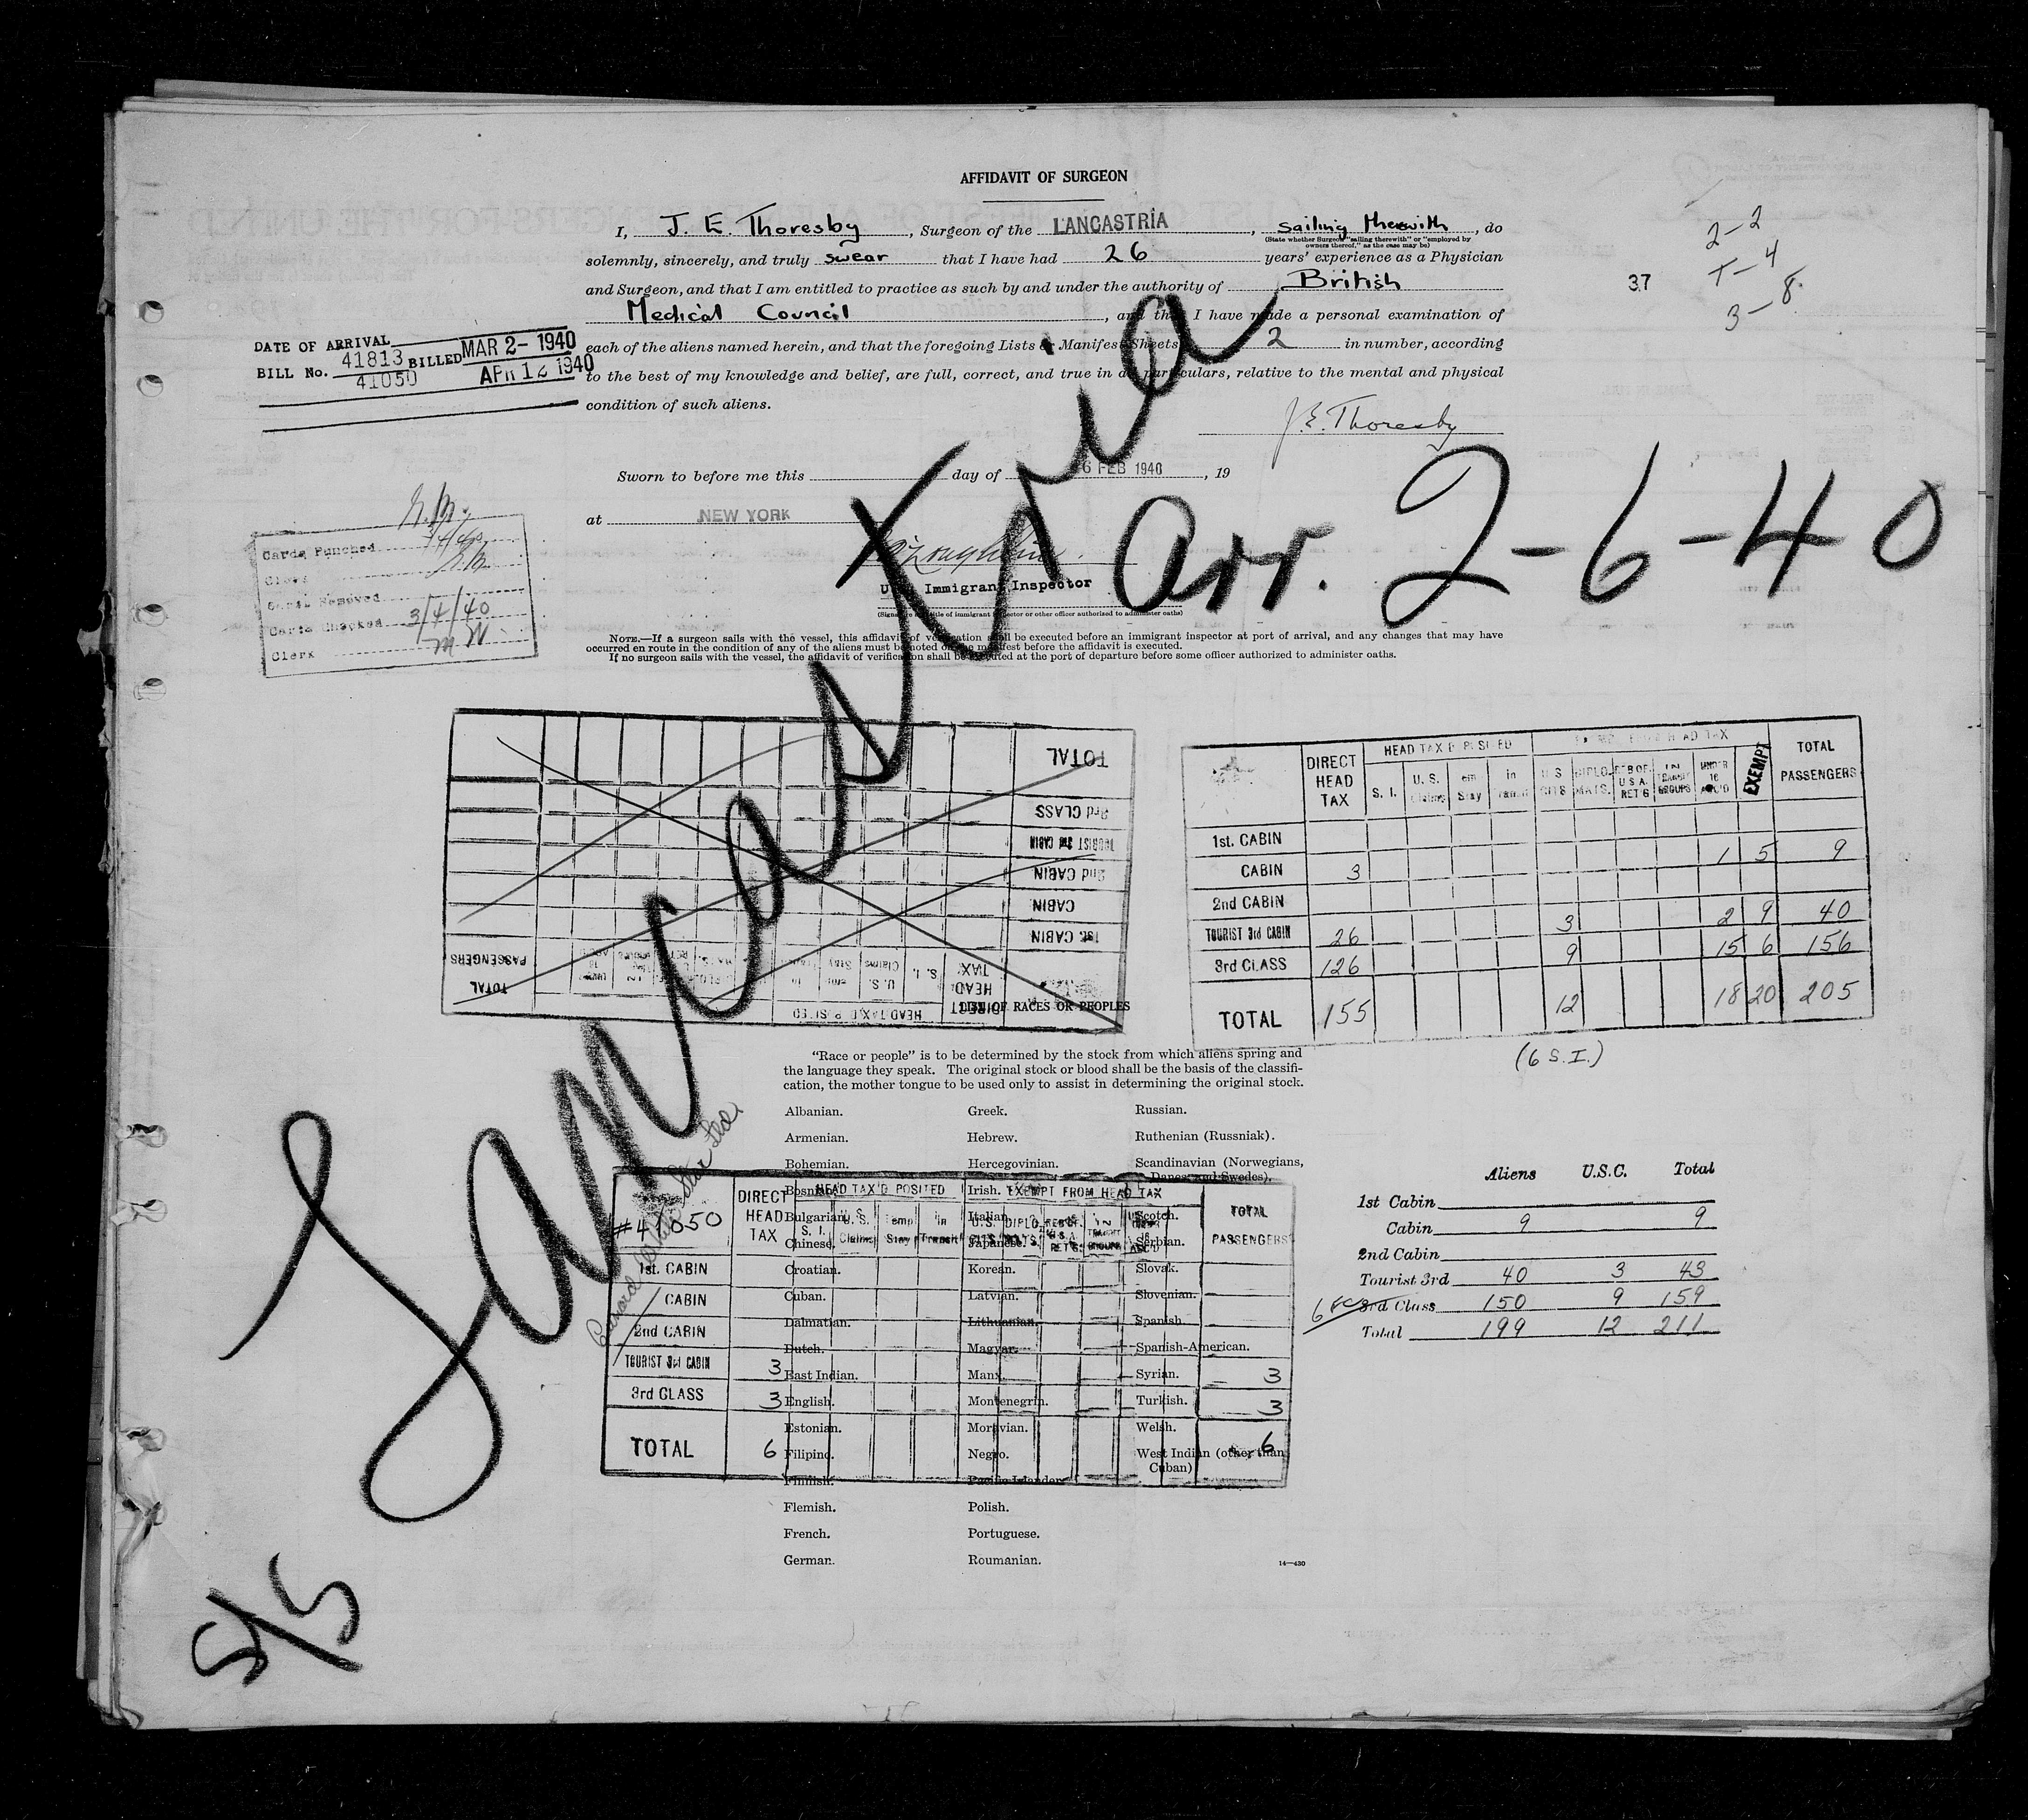 AFFIDAVIT OF SURGEON
I, J. E. Thoresby, Surgeon of the LANCASTRIA, sailing therewith, do
(State whether Surgeon "sailing therewith" or "employed by
owners thereof," as the case may be)
solemnly, sincerely, and truly swear that I have had 26 years' experience as a Physician
and Surgeon, and that I am entitled to practice as such by and under the authority of British
Medical Council, and that I have made a personal examination of
each of the aliens named herein, and that the foregoing Lists or Manifest Sheets 2 in number, according
to the best of my knowledge and belief, are full, correct, and true in all particulars, relative to the mental and physical
condition of such aliens.
J. E. Thoresby
2-2
T-4
3-8.
37
DATE OF ARRIVAL
BILL No. 41813 BILLED MAR 2- 1940
41050 APR 12 1940
Sworn to before me this day of 6 FEB 1940, 19
at NEW YORK
Immigrant Inspector
(Signature and title of immigrant inspector or other officer authorized to administer oaths)
Cards Punched 3/4/40
Clerk
Serial Removed
Cards Checked 3/4/40
Clerk MW
NOTE.—If a surgeon sails with the vessel, this affidavit of verification shall be executed before an immigrant inspector at port of arrival, and any changes that may have
occurred en route in the condition of any of the aliens must be noted on the manifest before the affidavit is executed.
If no surgeon sails with the vessel, the affidavit of verification shall be executed at the port of departure before some officer authorized to administer oaths.
S/S Lancastria arr. 2-6-40
TOTAL
3rd CLASS
TOURIST 3rd CABIN
2nd CABIN
CABIN
1st. CABIN
TOTAL PASSENGERS
DIRECT HEAD TAX
HEAD TAX D POSITED
S. I. U. S. Claims Stay in
DIRECT HEAD TAX HEAD TAX D POSITED EXEMPT FROM HEAD TAX TOTAL PASSENGERS
S. I. U. S. Claims em Stay in Transit U S CITS DIPLO. MATS. RES OF. U S A. RET'G IN TRANSIT GROUPS UNDER 16 ACC'D EXEMPT
1st. CABIN
CABIN 3 1 5 9
2nd CABIN
TOURIST 3rd CABIN 26 3 2 9 40
3rd CLASS 126 9 15 6 156
TOTAL 155 12 18 20 205
(6 S.I.)
LIST OF RACES OR PEOPLES
"Race or people" is to be determined by the stock from which aliens spring and
the language they speak. The original stock or blood shall be the basis of the classifi-
cation, the mother tongue to be used only to assist in determining the original stock.
Albanian.
Armenian.
Bohemian.
Bosnian.
Bulgarian.
Chinese.
Croatian.
Cuban.
Dalmatian.
Dutch.
East Indian.
English.
Estonian.
Filipino.
Finnish.
Flemish.
French.
German.
Greek.
Hebrew.
Hercegovinian.
Irish.
Italian.
Japanese.
Korean.
Latvian.
Lithuanian.
Magyar.
Manx.
Montenegrin.
Moravian.
Negro.
Pacific Islander.
Polish.
Portuguese.
Roumanian.
Russian.
Ruthenian (Russniak).
Scandinavian (Norwegians,
Danes and Swedes).
Scotch.
Serbian.
Slovak.
Slovenian.
Spanish.
Spanish-American.
Syrian.
Turkish.
Welsh.
West Indian (other than
Cuban)
14—430
Cunard White Star
#41050
DIRECT HEAD TAX HEAD TAX D POSITED EXEMPT FROM HEAD TAX TOTAL PASSENGERS
S. I. U.S. Claims Temp Stay in Transit U.S. CITS DIPLO. MATS. RES OF. U.S.A. RET'G IN TRANSIT GROUPS UNDER 16 ACC'D
1st. CABIN
CABIN
2nd CABIN
TOURIST 3rd CABIN 3 3
3rd CLASS 3 3
TOTAL 6 6
Aliens U.S.C. Total
1st Cabin
Cabin 9 9
2nd Cabin
Tourist 3rd 40 3 43
3rd Class 150 9 159
Total 199 12 211